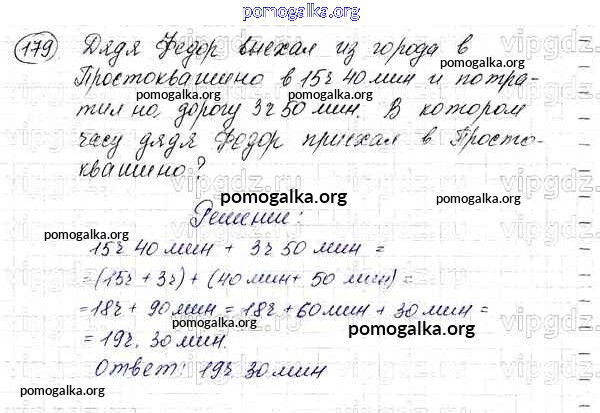 pomogalka.org
179 Дядя Федор выехал из города в
Простоквашино в 15ч 40 мин и потра-
тил на дорогу 3ч 50 мин. В котором
часу дядя Федор приехал в Просто-
квашино?
pomogalka.org
pomogalka.org
Решение:
pomogalka.org
pomogalka.org
15ч 40 мин + 3ч 50 мин =
=(15ч + 3ч) + (40 мин + 50 мин) =
pomogalka.org
pomogalka.org
=18ч + 90 мин = 18ч + 60 мин + 30 мин =
pomogalka.org
pomogalka.org
= 19ч. 30 мин.
Ответ: 19ч 30 мин
pomogalka.org
pomogalka.org